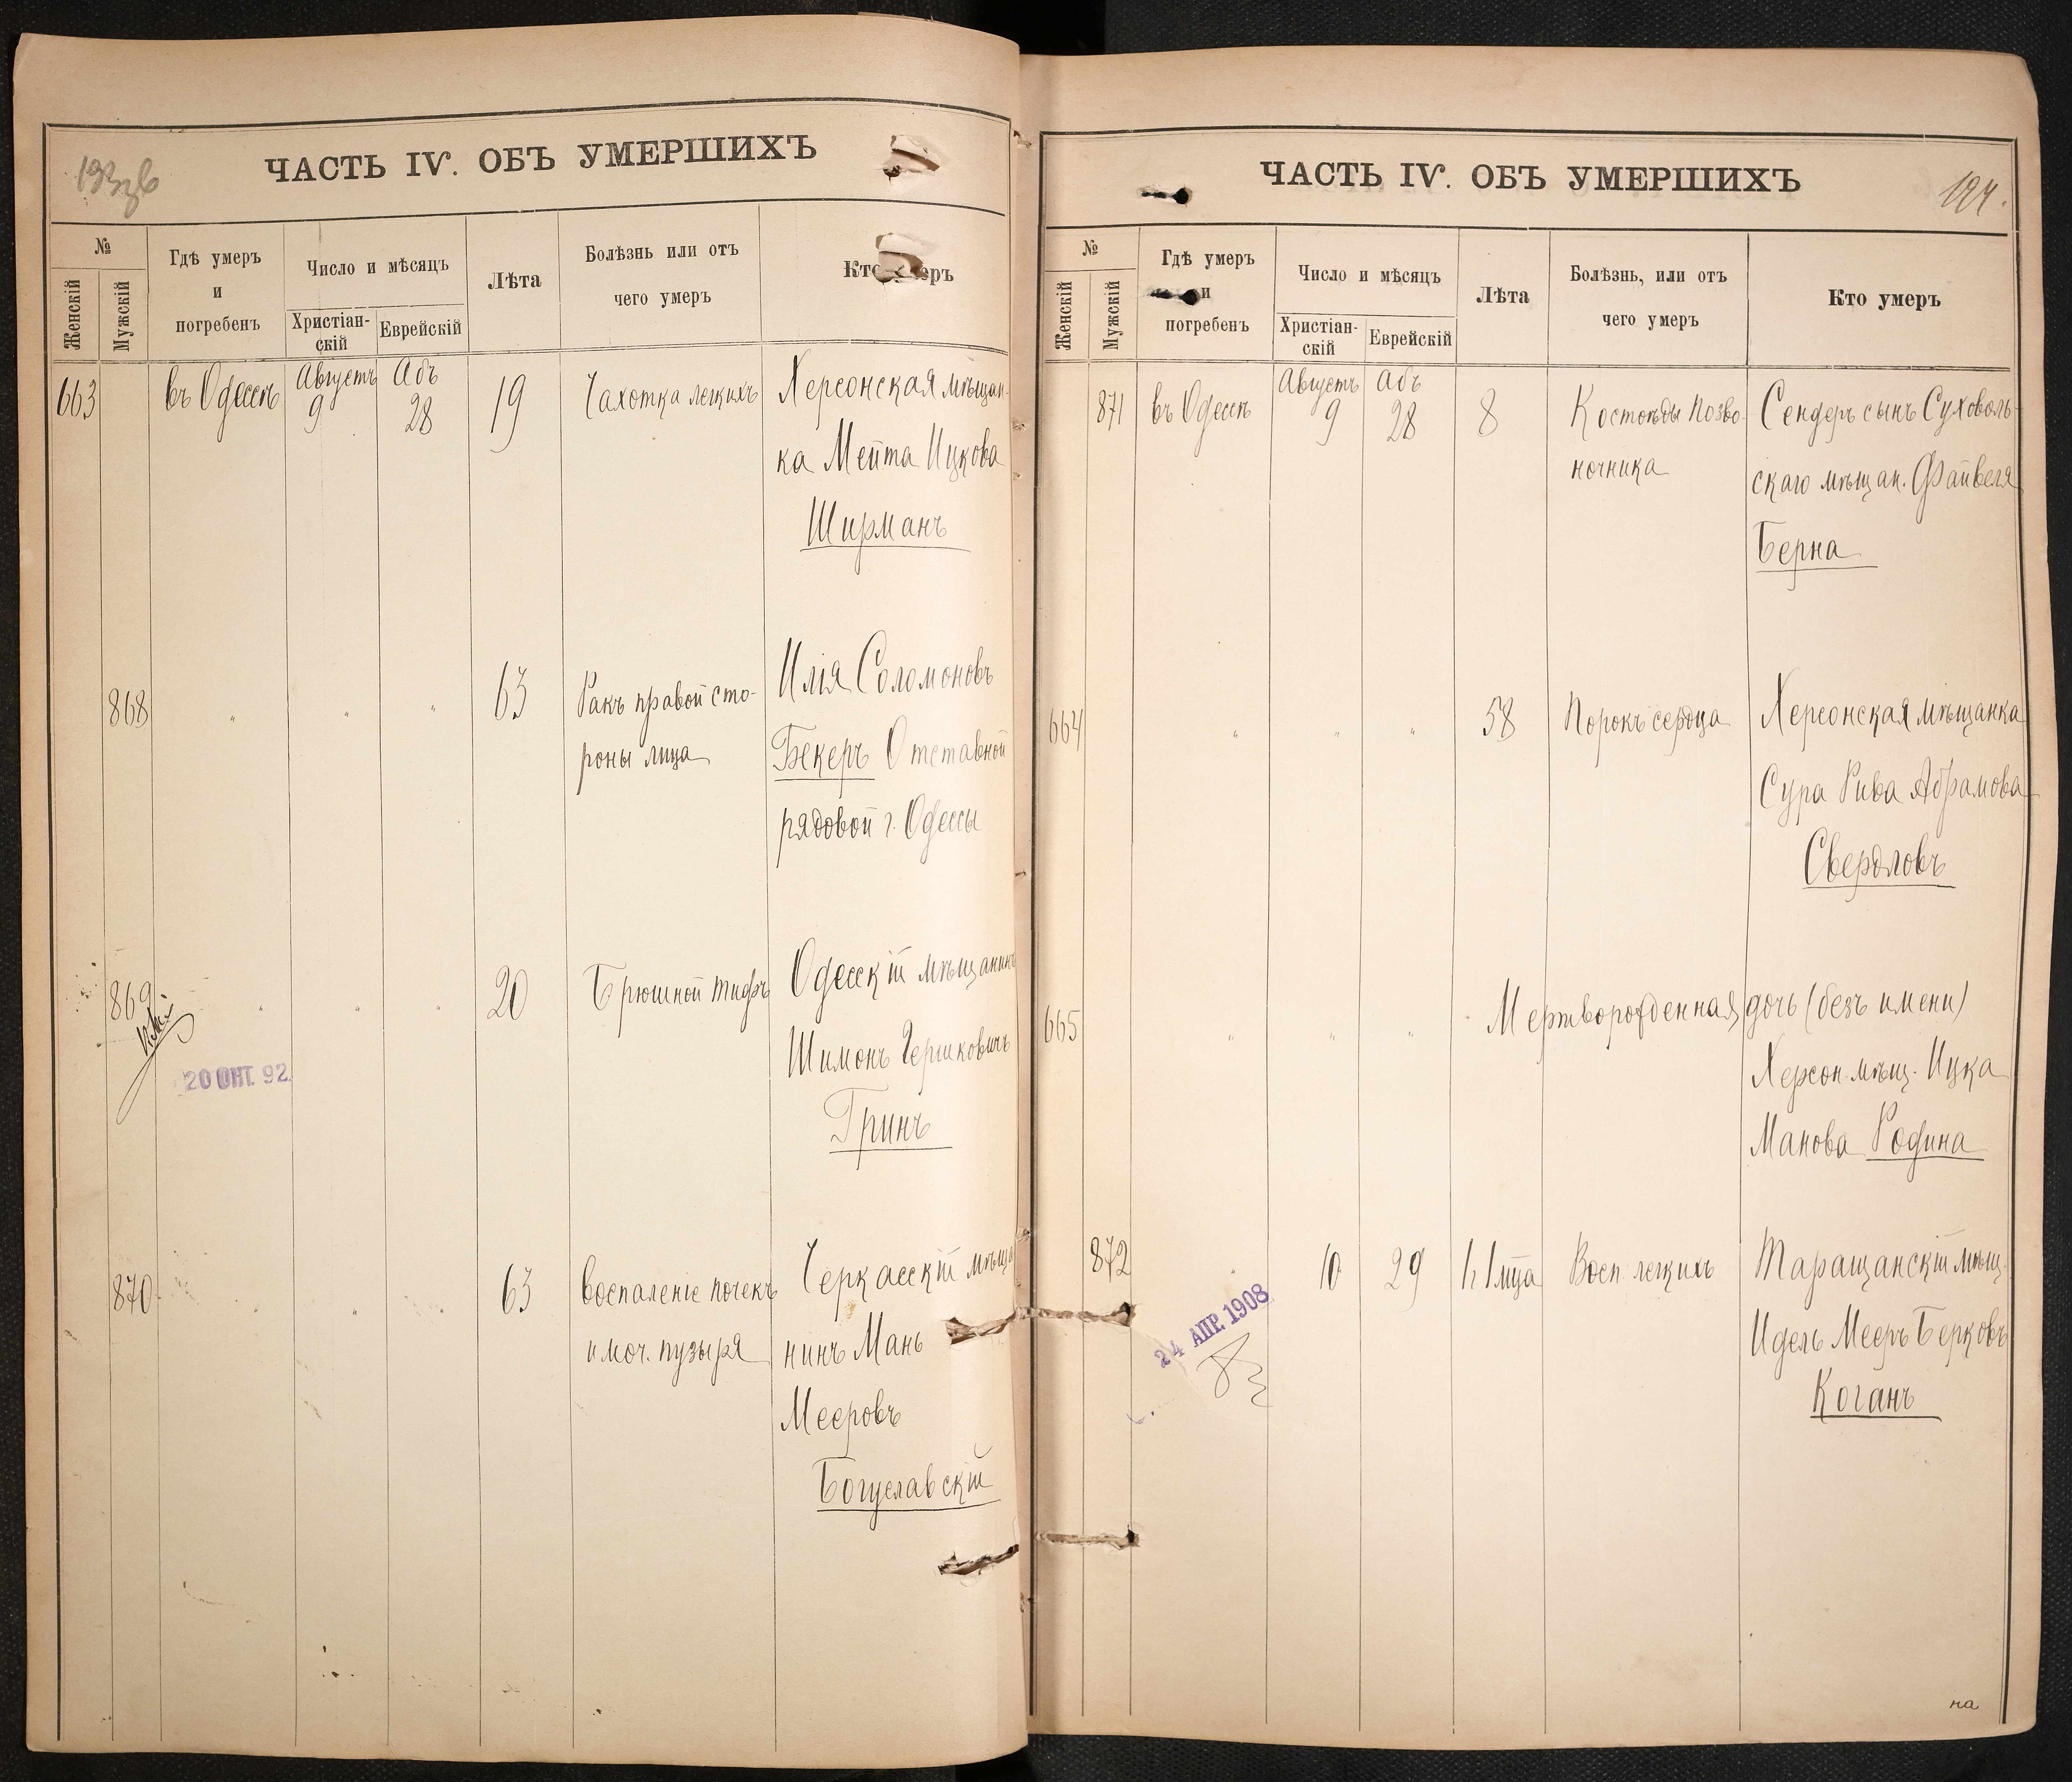 193 об
ЧАСТЬ IV. ОБЪ УМЕРШИХЪ
№
Женскій
Мужскій
Гдѣ умеръ
и
погребенъ
Число и мѣсяцъ
Христіан-
скій
Еврейскій
Лѣта
Болѣзнь или отъ
чего умеръ
Кто умеръ
663 въ Одессѣ Августъ 9 Абъ 28 19 Чахотка легкихъ Херсонская мѣщан-
ка Мейта Ицкова
Ширманъ
868 " " " 63 Ракъ правой сто-
роны лица
Илія Соломоновъ
Бекеръ Отставной
рядовой г. Одессы
869 " " " 20 Брюшной тифъ Одесскій мѣщанинъ
Шимонъ Гершковичъ
Гринъ
20 ОКТ. 92
870 " " " 63 Воспаленіе почекъ
и моч. пузыря
Черкасскій мѣща
нинъ Мань
Мееровъ
Богуславскій
ЧАСТЬ IV. ОБЪ УМЕРШИХЪ
194.
№
Женскій
Мужскій
Гдѣ умеръ
и
погребенъ
Число и мѣсяцъ
Христіан-
скій
Еврейскій
Лѣта
Болѣзнь, или отъ
чего умеръ
Кто умеръ
871 въ Одессѣ Августъ 9 Абъ 28 8 Костоѣды позво-
ночника
Сендеръ сынъ Суховоль-
скаго мѣщан. Файвеля
Берна
664 " " " 58 Порокъ сердца Херсонская мѣщанка
Сура Рива Абрамова
Свердловъ
665 " " " Мертворожденная дочь (безъ имени)
Херсон. мѣщ. Ицка
Манова Родина
872 " 10 29 1 г. 1 м-ца Восп. легкихъ Таращанскій мѣщ.
Идель Мееръ Берковъ
Коганъ
24 АПР. 1908
на